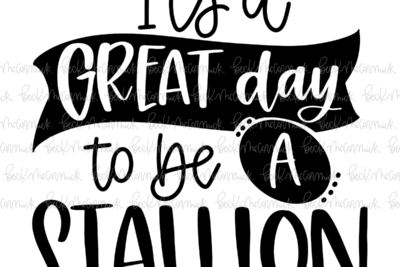 It's a
GREAT day
to be A
STALLION